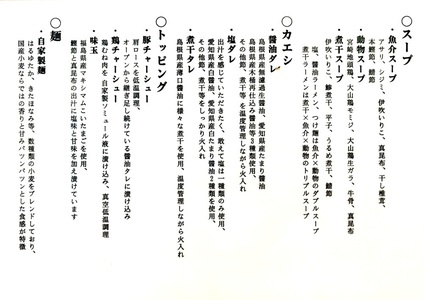 ○スープ
・魚介スープ
アサリ、シジミ、伊吹いりこ、真昆布、干し椎茸、
本鰹節、鯖節
・動物スープ
宮崎地頭鶏、大山鶏モミジ、大山鶏生ガラ、牛骨、真昆布
・煮干スープ
伊吹いりこ、鯵煮干、平子、うるめ煮干、鯖節
塩、醤油ラーメン、つけ麺は魚介×動物のダブルスープ
煮干ラーメンは煮干×魚介×動物のトリプルスープ
○カエシ
・醤油ダレ
島根県産無濾過生醤油、愛知県産たまり醤油
島根県産木桶再仕込み醤油等3種類使用、
その他節、煮干等を温度管理しながら火入れ
・塩ダレ
出汁を感じていただきたく敢えて塩は一種類のみ使用、
愛知県産白醤油、愛知県産白たまり醤油2種類を使用、
その他節、煮干等をしっかり火入れ
・煮干タレ
島根県産薄口醤油に様々な煮干を使用、温度管理しながら火入れ
○トッピング
・豚チャーシュー
肩ロースを低温調理、
オーブンから継ぎ足し続けている醤油タレに漬け込み
・鶏チャーシュー
鶏むね肉を自家製ソミュール液に漬け込み、真空低温調理
・味玉
福島県産マキシマムこいたまごを使用、
鰹節と真昆布の出汁に塩味と甘味を加え漬けています
○麺
・自家製麺
はるゆたか、きたほなみ等、数種類の小麦をブレンドしており、
国産小麦ならではの香りと甘み、パツンパツンとした食感が特徴